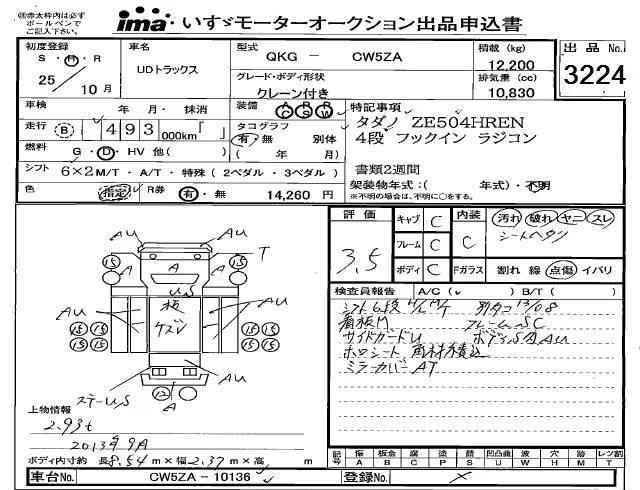 ※赤太枠内は必ず
ボールペンで
ご記入下さい。
ima いすゞモーターオークション出品申込書
初度登録
S・H・R
25/10月
車名
UDトラックス
型式
QKG - CW5ZA
グレード・ボディ形状
クレーン付き
積載 (kg)
12,200
排気量 (cc)
10,830
出品No
3224
車検
年 月・抹消
装備
AC PS PW
走行 (B) 493 000km「 」
タコグラフ
有・無 別体
( 年 月)
燃料
G・D・HV 他( )
シフト
6×2 M/T・A/T・特殊(2ペダル・3ペダル)
色
指定
R券
有・無 14,260 円
特記事項
タダノ ZE504HREN
4段 フックイン ラジコン
書類2週間
架装物年式:( 年式)・不明
※不明の場合は、不明に○をする。
評価
3.5
キャブ C
フレーム C
ボディ C
内装
C
Fガラス
汚れ 破れ ヤニ スレ
シートヘタリ
割れ 線 点傷 イバリ
検査員報告 A/C( ) B/T( )
シフト6段 M/T 別タコ 13/08
看板M フレームSC
サイドガードU
ホロシート 角材積込
ミラーカバーAT
AU
AU
T
15
15
A
A
A
U,S
板
ケズレ
AU
AU
15 15
15 15
15 15
15 15
AU
ステーU,S
12
A
上物情報
2.93t
2013年9月
ボディ内寸約 長8.54m×幅2.37m×高 m
記号
傷 A
板金 B
腐 C
塗 P
錆 S
凹凸曲 U
波 W
穴 H
跡 M
レツ割 T
車台No.
CW5ZA-10136
登録No.
×